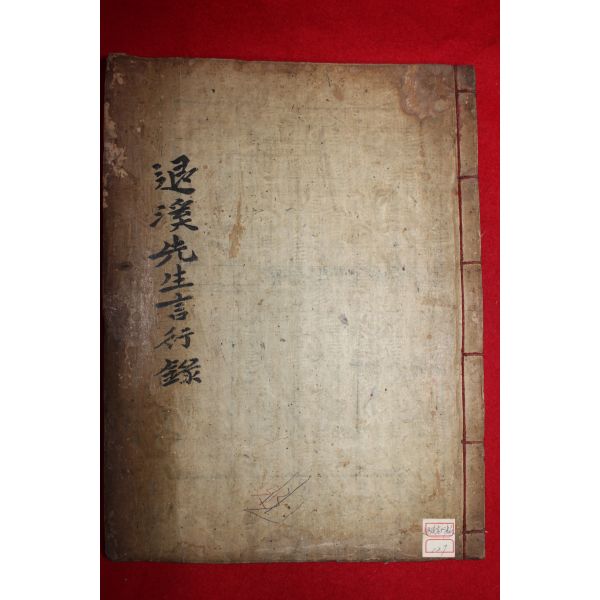 退溪先生言行錄